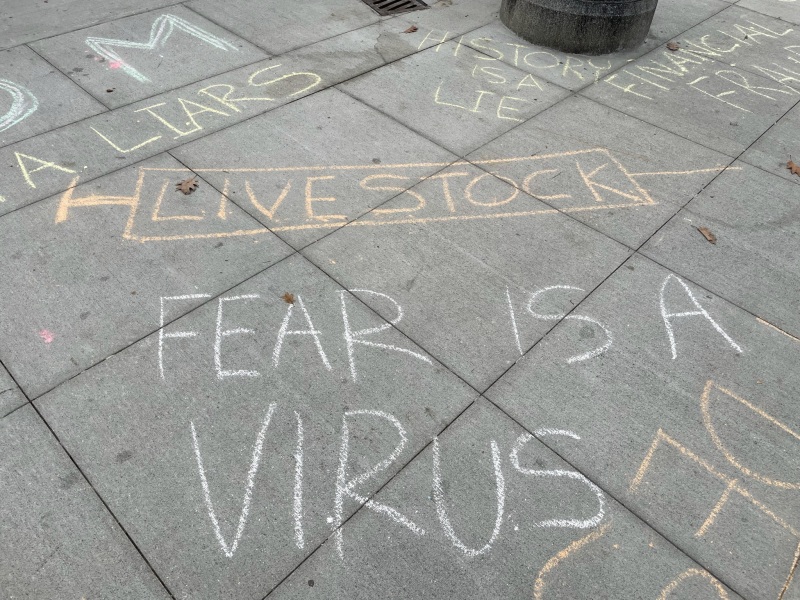 HISTORY
IS A
LIE
FINANCIAL
LIARS
LIVESTOCK
FEAR IS A
VIRUS